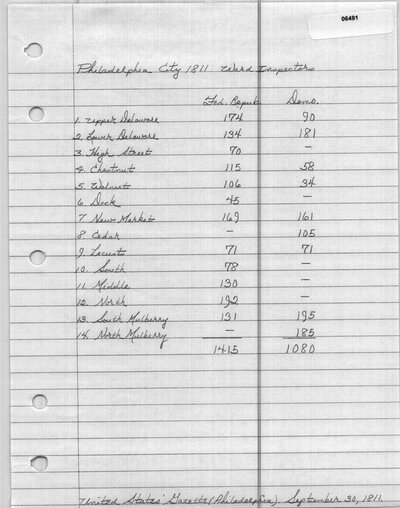 06491
Philadelphia City 1811 Ward Inspectors
Fed. Repub. Demo.
1. Upper Delaware 174 90
2. Lower Delaware 134 181
3. High Street 70 —
4. Chestnut 115 58
5. Walnut 106 34
6. Dock 45 —
7. New Market 169 161
8. Cedar — 105
9. Locust 71 71
10. South 78 —
11. Middle 130 —
12. North 192 —
13. South Mulberry 131 195
14. North Mulberry — 185
1415 1080
United States' Gazette (Philadelphia) September 30, 1811.